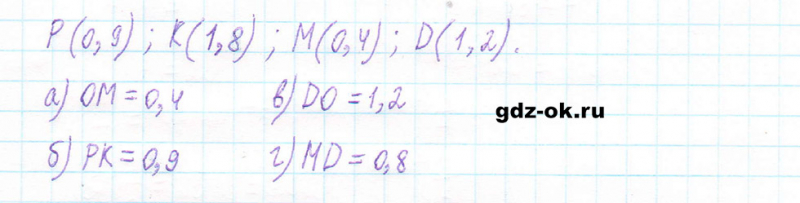 P(0,9); K(1,8); M(0,4); D(1,2).
а) OM = 0,4 в) DO = 1,2
gdz-ok.ru
б) PK = 0,9 г) MD = 0,8